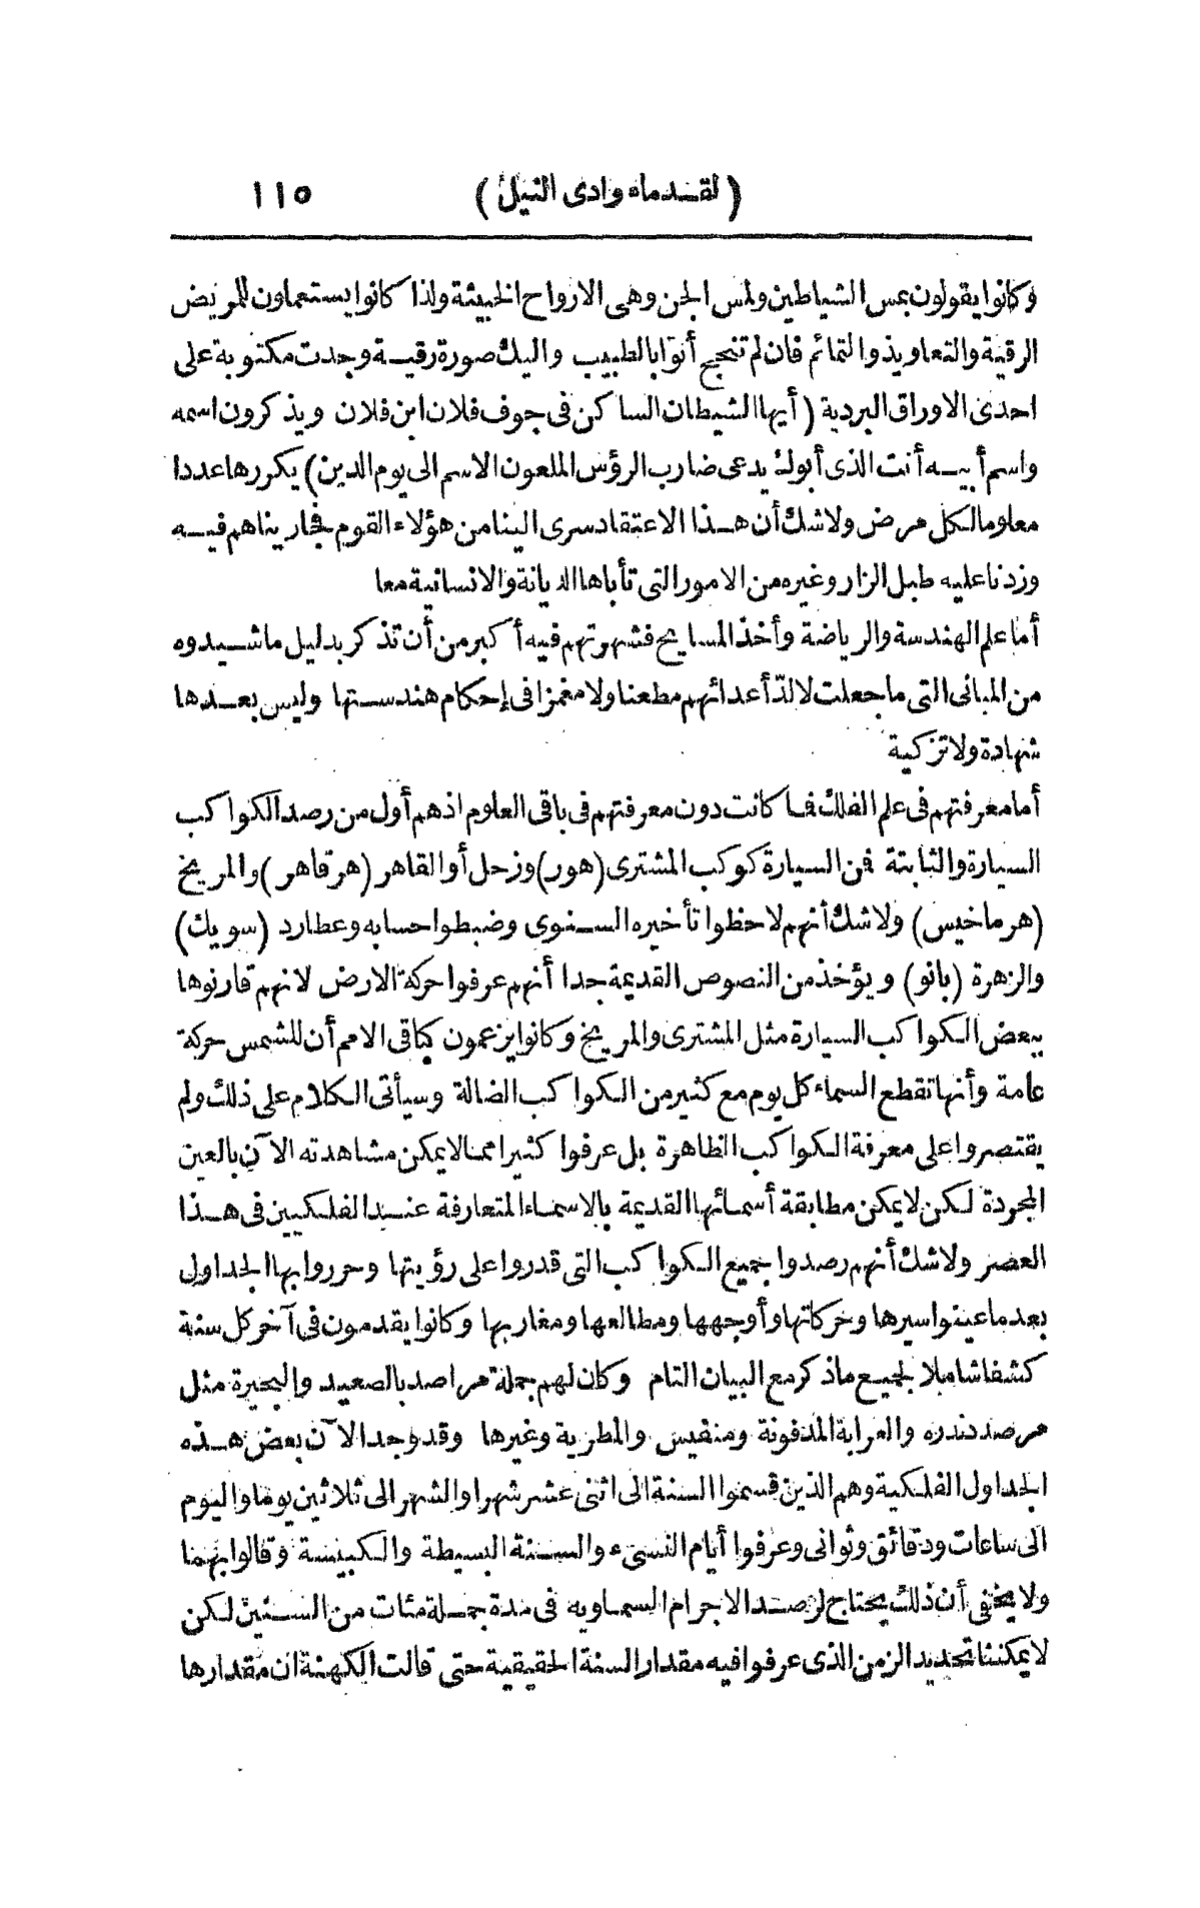 (لقدماء وادى النيل) ١١٥
وكانوا يقولون بمس الشياطين ولمس الجن وهى الارواح الخبيثة ولذا كانوا يستعملون للمريض
الرقية والتعاويذ والتمائم فان لم تنجح أتوا بالطبيب واليك صورة رقية وجدت مكتوبة على
احدى الاوراق البردية (أيها الشيطان الساكن فى جوف فلان ابن فلان ويذكرون اسمه
واسم أبيه أنت الذى أبوك يدعى ضارب الرؤس الملعون الاسم الى يوم الدين) يكررها عددا
معلوما لكل مرض ولاشك أن هذا الاعتقاد سرى الينا من هؤلاء القوم فجاريناهم فيه
وزدنا عليه طبل الزار وغيره من الامور التى تأباها الديانة والانسانية معا
أما علم الهندسة والرياضة وأخذ المسايح فشهرتهم فيه أكبر من أن تذكر بدليل ماشيدوه
من المبانى التى ماجعلت لالدّ أعدائهم مطعنا ولا مغمزا فى إحكام هندستها وليس بعدها
شهادة ولا تزكية
أما معرفتهم فى علم الفلك فما كانت دون معرفتهم فى باقى العلوم اذهم أول من رصد الكواكب
السيارة والثابتة فمن السيارة كوكب المشترى (هور) وزحل أو القاهر (هرقاهر) والمريخ
(هرماخيس) ولاشك أنهم لاحظوا تأخيره السنوى وضبطوا حسابه وعطارد (سويك)
والزهرة (بانو) ويؤخذ من النصوص القديمة جدا أنهم عرفوا حركة الارض لانهم قارنوها
ببعض الكواكب السيارة مثل المشترى والمريخ وكانوا يزعمون كباقى الامم أن للشمس حركة
عامة وأنها تقطع السماء كل يوم مع كثير من الكواكب الضالة وسيأتى الكلام على ذلك ولم
يقتصروا على معرفة الكواكب الظاهرة بل عرفوا كثيرا ممالا يمكن مشاهدته الآن بالعين
المجردة لكن لا يمكن مطابقة أسمائها القديمة بالاسماء المتعارفة عند الفلكيين فى هذا
العصر ولاشك أنهم رصدوا جميع الكواكب التى قدروا على رؤيتها وحرروا بها الجداول
بعد ماعينوا سيرها وحركاتها وأوجهها ومطالعها ومغاربها وكانوا يقدمون فى آخر كل سنة
كشفا شاملا لجميع ماذكر مع البيان التام وكان لهم جملة مراصد بالصعيد والبحيرة مثل
مرصد دندره والعرابة المدفونة ومنفيس والمطرية وغيرها وقد وجد الآن بعض هذه
الجداول الفلكية وهم الذين قسموا السنة الى اثنى عشر شهرا والشهر الى ثلاثين يوما واليوم
الى ساعات ودقائق وثوانى وعرفوا أيام النسىء والسنة البسيطة والكبيسة وقالوا بهما
ولا يخفى أن ذلك يحتاج لرصد الاجرام السماويه فى مدة جملة مئات من السنين لكن
لا يمكننا تحديد الزمن الذى عرفوا فيه مقدار السنة الحقيقية حتى قالت الكهنة ان مقدارها